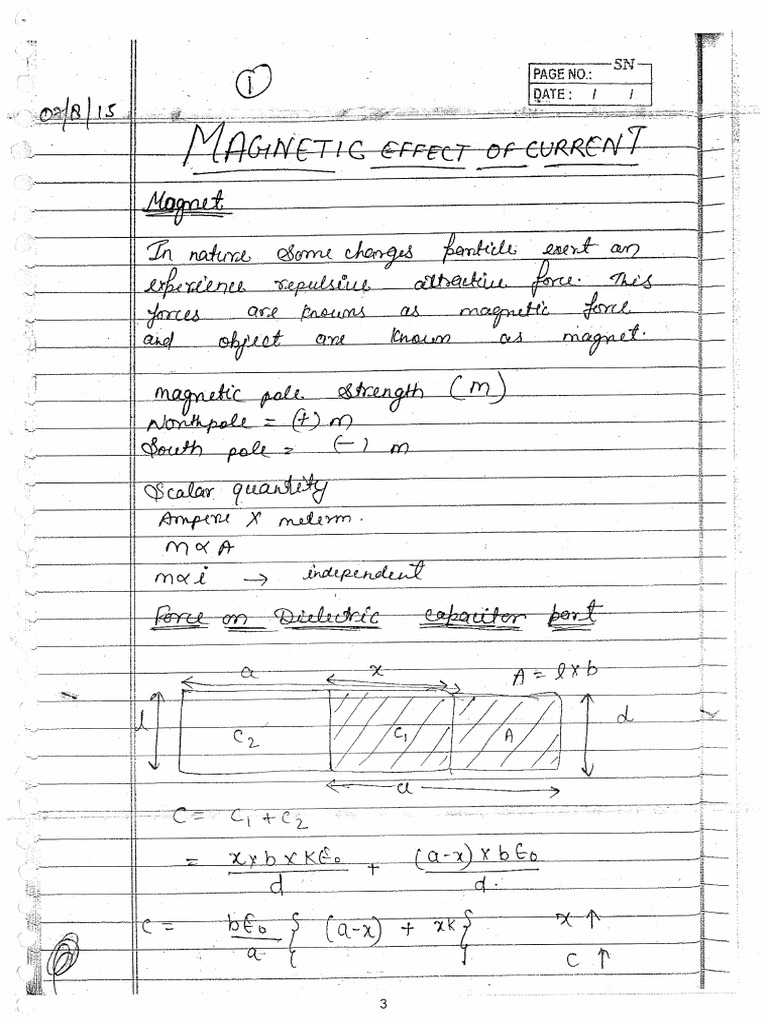 1
PAGE NO.: SN
DATE : / /
02/8/15
MAGINETIC EFFECT OF CURRENT
Magnet
In nature some charges particle exert an
experience repulsive attractive force. This
forces are knowns as magnetic force
and object are known as magnet.
magnetic pole strength (m)
Northpole = (+) m
South pole = (-) m
Scalar quantity
Ampere X meterm.
m ∝ A
m ∝ i → independent
Force on Dielectric capacitor part
a x A = l x b
l C2 C1 A d
a
C = C1 + C2
= x x b x K€0 / d + (a-x) x b €0 / d.
C = b€0 / a { (a-x) + xK } x ↑
C ↑
3